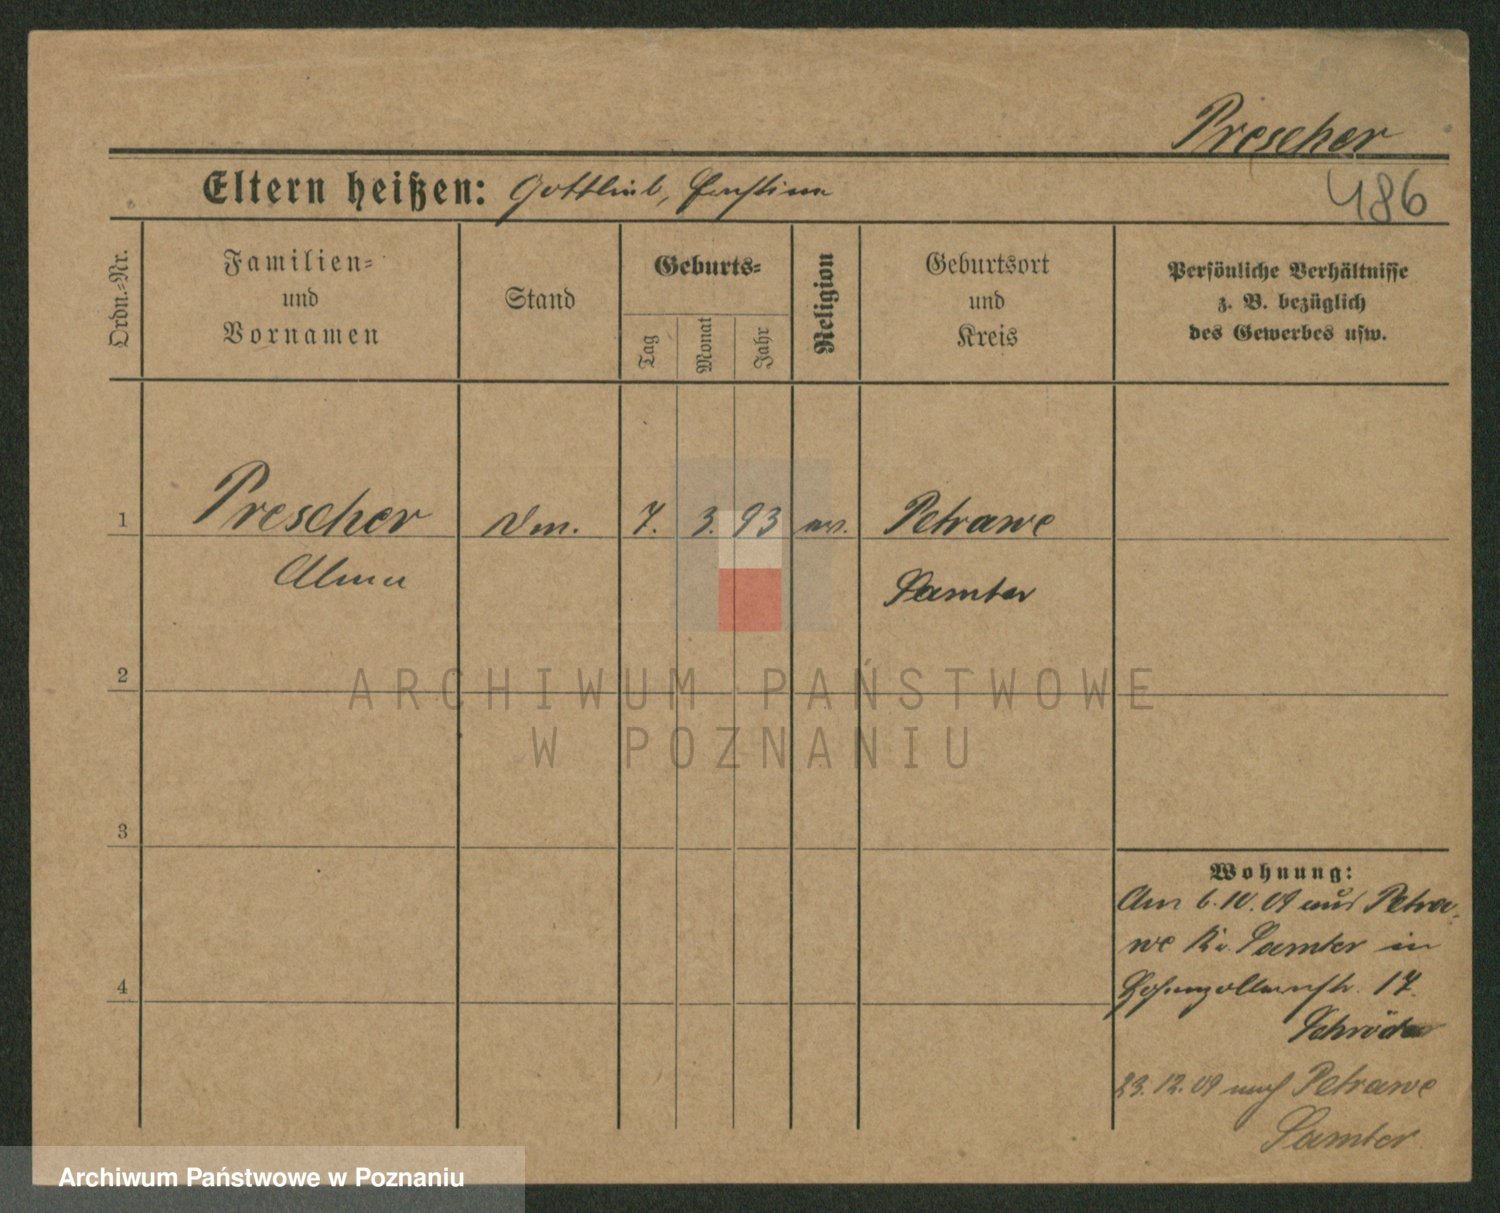 Prescher
486
Eltern heißen: Gottlieb, Ernstine
Ordn.-Nr.
Familien-
und
Vornamen
Stand
Geburts-
Tag
Monat
Jahr
Religion
Geburtsort
und
Kreis
Persönliche Verhältnisse
z. B. bezüglich
des Gewerbes usw.
1 Prescher 7. 3. 93 ev. Petrawe
Alma Samter
2
3
4
Wohnung:
Am 6.10.09 aus Petra-
we Kr. Samter in
Hohenzollernstr. 17.
Schröder
23.12.09 nach Petrawe
Samter
ARCHIWUM PAŃSTWOWE
W POZNANIU
Archiwum Państwowe w Poznaniu